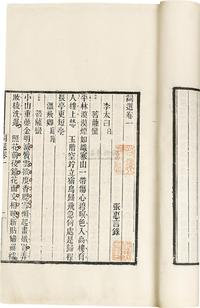 詞選卷一
張惠言錄
李太白
菩薩蠻
平林漠漠煙如織寒山一帶傷心碧暝色入高樓有
人樓上愁 玉階空佇立宿鳥歸飛急何處是歸程
亭更短亭
溫飛卿
菩薩蠻
小山重疊金明滅鬢雲欲度香腮雪懶起畫蛾眉弄
妝梳洗遲 照花前後鏡花面交相映新貼繡羅